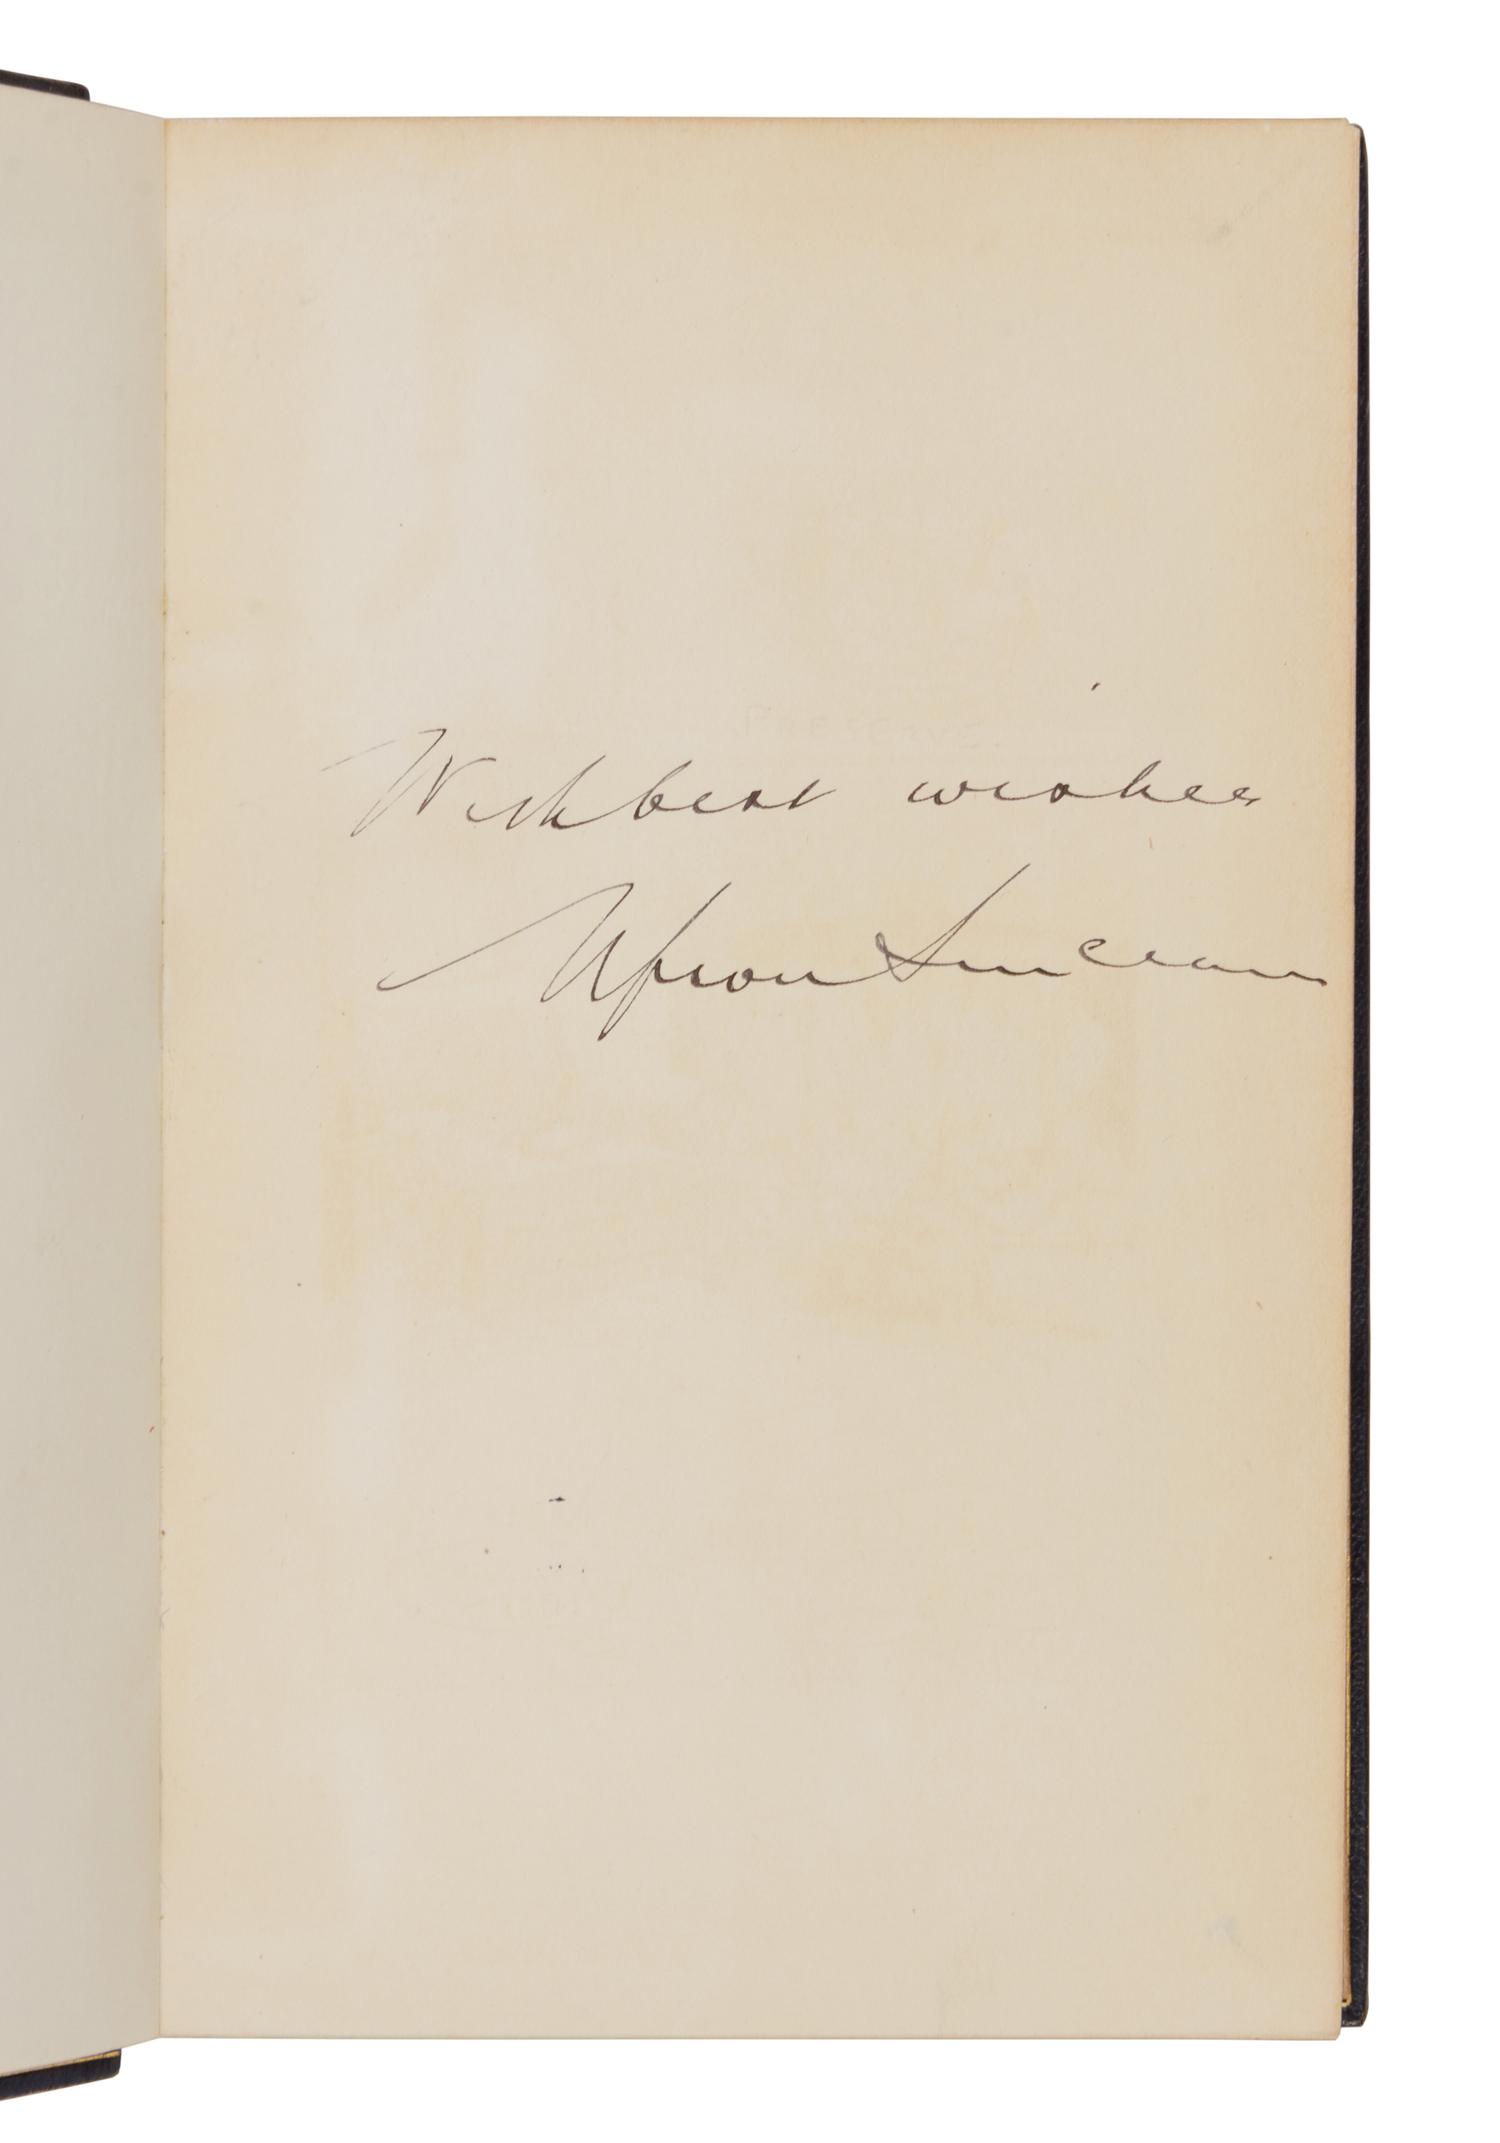 PRESERVE.
With best wishes
Upton Sinclair